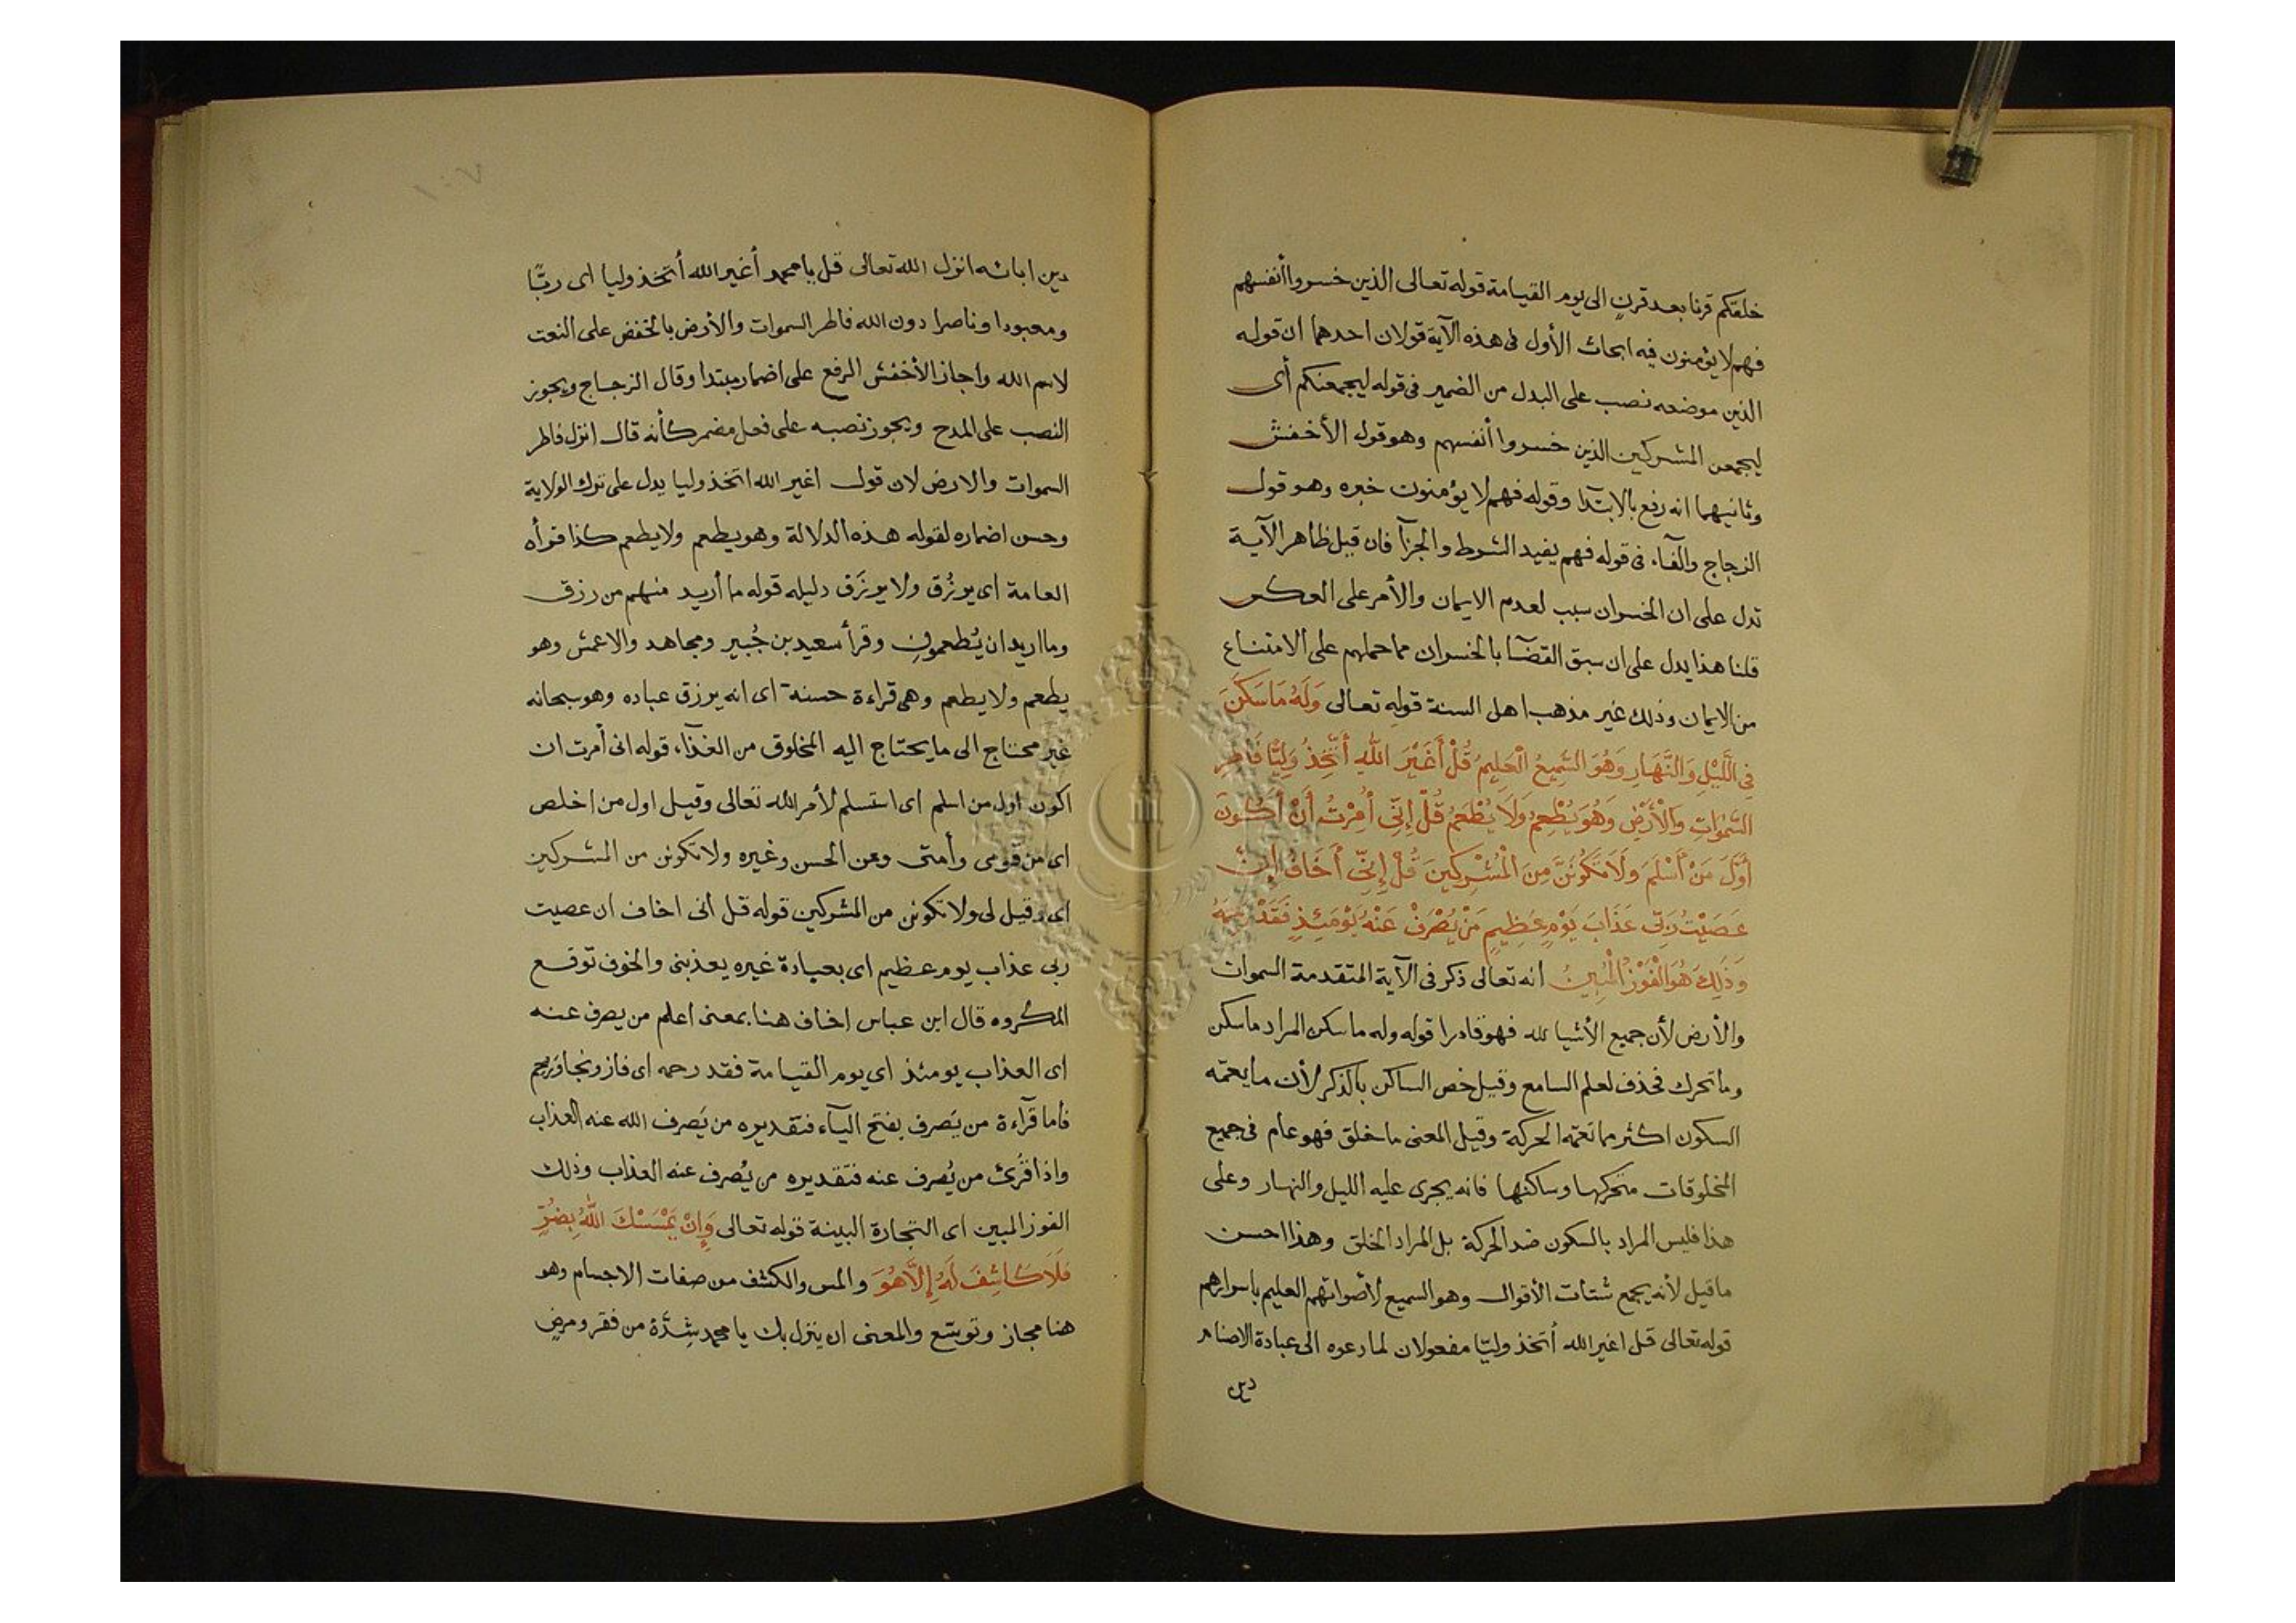 خلقكم قرنا بعد قرن الى يوم القيامة قوله تعالى الذين خسروا أنفسهم
فهم لا يؤمنون فيه ابحاث الأول فى هذه الآية قولان احدهما ان قوله
الذين موضعه نصب على البدل من الضمير فى قوله ليجمعنكم أى
ليجمعن المشركين الذين خسروا أنفسهم وهو قول الأخفش
وثانيهما انه رفع بالابتدآ وقوله فهم لا يؤمنون خبره وهو قول
الزجاج والفآء فى قوله فهم يفيد الشرط والجزآ فان قيل ظاهر الآية
تدل على ان الخسران سبب لعدم الايمان والأمر على العكس
قلنا هذا يدل على ان سبق القضآ بالخسران مما حملهم على الامتناع
من الايمان وذلك غير مذهب اهل السنة قوله تعالى وَلَهُ مَا سَكَنَ
فِي اللَّيْلِ وَالنَّهَارِ وَهُوَ السَّمِيعُ الْعَلِيمُ قُلْ أَغَيْرَ اللَّهِ أَتَّخِذُ وَلِيًّا فَاطِرِ
السَّمٰوَاتِ وَالْأَرْضِ وَهُوَ يُطْعِمُ وَلَا يُطْعَمُ قُلْ إِنِّي أُمِرْتُ أَنْ أَكُونَ
أَوَّلَ مَنْ أَسْلَمَ وَلَا تَكُونَنَّ مِنَ الْمُشْرِكِينَ قُلْ إِنِّي أَخَافُ إِنْ
عَصَيْتُ رَبِّي عَذَابَ يَوْمٍ عَظِيمٍ مَنْ يُصْرَفْ عَنْهُ يَوْمَئِذٍ فَقَدْ رَحِمَهُ
وَذَلِكَ هُوَ الْفَوْزُ الْمُبِينُ انه تعالى ذكر فى الآية المتقدمة السموات
والأرض لأن جميع الأشيا لله فهو قادرا قوله وله ما سكن المراد ما سكن
وما تحرك فحذف لعلم السامع وقيل خص الساكن بالذكر لأن ما يعمّه
السكون اكثر مما تعمّه الحركة وقيل المعنى ما خلق فهو عام فى جميع
المخلوقات متحركها وساكنها فانه يجرى عليه الليل والنهار وعلى
هذا فليس المراد بالسكون ضد الحركة بل المراد الخلق وهذا احسن
ما قيل لأنه يجمع شتات الأقوال وهو السميع لأصواتهم العليم باسرارهم
قوله تعالى قل اغير الله أتخذ وليّا مفعولان لما دعوه الى عبادة الاصنام
دين
دين ابائه انزل الله تعالى قل يا محمد أغير الله أتخذ وليا اى ربًّا
ومعبودا وناصرا دون الله فاطر السموات والأرض بالخفض على النعت
لاسم الله واجاز الأخفش الرفع على اضمار مبتدا وقال الزجاج ويجوز
النصب على المدح ويجوز نصبه على فعل مضمر كأنه قال انزل فاطر
السموات والارض لان قوله اغير الله اتخذ وليا يدل على ترك الولاية
وحسن اضماره لقوله هذه الدلالة وهو يطعم ولا يطعم كذا قرأه
العامة اى يرزُق ولا يرزَق دليله قوله ما أريد منهم من رزق
وما اريد ان يُطعمونِ وقرأ سعيد بن جُبير ومجاهد والاعمش وهو
يطعم ولا يطعم وهى قراءة حسنة اى انه يرزق عباده وهو سبحانه
غير محتاج الى ما يحتاج اليه المخلوق من الغذآء قوله انى أمرت ان
اكون اول من اسلم اى استسلم لأمر الله تعالى وقيل اول من اخلص
اى من قومى وأمتى وعن الحسن وغيره ولا تكونن من المشركين
اى وقيل لى ولا تكونن من المشركين قوله قل انى اخاف ان عصيت
ربى عذاب يوم عظيم اى بعبادة غيره يعذبنى والخوف توقع
المكروه قال ابن عباس اخاف هنا بمعنى اعلم من يصرف عنه
اى العذاب يومئذ اى يوم القيامة فقد رحمه اى فاز ونجا ورُحم
فأما قرآءة من يَصرف بفتح اليآء فتقديره من يَصرف الله عنه العذاب
واذا قرئ من يُصرف عنه فتقديره من يُصرف عنه العذاب وذلك
الفوز المبين اى التجارة البينة قوله تعالى وَإِنْ يَمْسَسْكَ اللَّهُ بِضُرٍّ
فَلَا كَاشِفَ لَهُ إِلَّا هُوَ والمس والكشف من صفات الاجسام وهو
هنا مجاز وتوسّع والمعنى ان ينزل بك يا محمد شِدَّة من فقر ومرضٍ